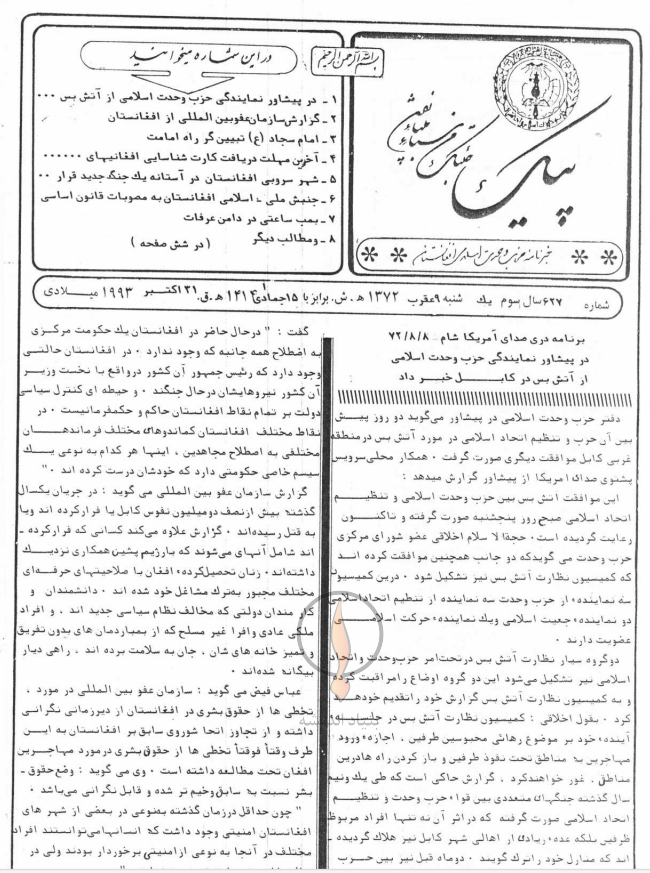 بسم الله الرحمن الرحیم
پیک
خبرنامه حزب وحدت اسلامی افغانستان
در این شماره میخوانید
۱ ـ در پیشاور نمایندگی حزب وحدت اسلامی از آتش بس ...
۲ ـ گزارش سازمان عفو بین المللی از افغانستان
۳ ـ امام سجاد (ع) تبیین گر راه امامت
۴ ـ آخرین مهلت دریافت کارت شناسایی افغانیهای ......
۵ ـ شهر سروبی افغانستان در آستانه یک جنگ جدید قرار ..
۶ ـ جنبش ملی ـ اسلامی افغانستان به مصوبات قانون اساسی
۷ ـ بمب ساعتی در دامن عرفات
۸ ـ ومطالب دیگر ( در شش صفحه )
شماره ۶۲۷ سال سوم یک شنبه ۹ عقرب ۱۳۷۲ ه. ش. برابر با ۱۵ جمادی ۱ ۱۴۱۴ ه.ق. ۳۱ اکتبر ۱۹۹۳ میلادی
برنامه دری صدای آمریکا شام ۷۲/۸/۸
در پیشاور نمایندگی حزب وحدت اسلامی
از آتش بس در کابل خبر داد
دفتر حزب وحدت اسلامی در پیشاور میگوید دو روز پیش
بین آن حزب و تنظیم اتحاد اسلامی در مورد آتش بس در منطقه
غربی کابل موافقت دیگری صورت گرفت ۰ همکار محلی سرویس
پشتوی صدای امریکا از پیشاور گزارش میدهد :
این موافقت اتش بس بین حزب وحدت اسلامی و تنظیم
اتحاد اسلامی صبح روز پنجشنبه صورت گرفته و تاکنون
رعایت گردیده است ۰ حجة الاسلام اخلاقی عضو شورای مرکزی
حزب وحدت می گویدکه دو جانب همچنین موافقت کرده اند
که کمیسیون نظارت آتش بس نیز تشکیل شود ۰ درین کمیسیون
سه نماینده از حزب وحدت سه نماینده از تنظیم اتحاد اسلامی
دو نماینده جمعیت اسلامی ویک نماینده حرکت اسلامی
عضویت دارند ۰
دوگروه سیار نظارت آتش بس در تحت امر حزب وحدت و اتحاد
اسلامی نیز تشکیل می شود این دو گروه اوضاع را مراقبت کرده
و به کمیسیون نظارت آتش بس گزارش خود را تقدیم خواهد
کرد ۰ بقول اخلاقی : کمیسیون نظارت آتش بس در جلسات
آینده خود بر موضوع رهائی محبوسین طرفین ، اجازه ورود
مهاجرین به مناطق تحت نفوذ طرفین و باز کردن راه هادرین
مناطق ، غور خواهندکرد ۰ گزارش حاکی است که طی یک ونیم
سال گذشته جنگهای متعددی بین قواء حزب وحدت و تنظیم
اتحاد اسلامی صورت گرفته که در اثر آن نه تنها افراد مربوط
ظرفین بلکه عده زیادی از اهالی شهر کابل نیز هلاک گردیده ـ
اند که منازل خود را ترک گویند ۰ دوماه قبل نیز بین حزب
گفت : " درحال حاضر در افغانستان یک حکومت مرکزی
به اصطلاح همه جانبه که وجود ندارد ۰ در افغانستان حالتی
وجود دارد که رئیس جمهور آن کشور درواقع با نخست وزیر
آن کشور نیروهایشان درحال جنگند ۰ و حیطه ای کنترل سیاسی
دولت بر تمام نقاط افغانستان حاکم و حکمفرمانیست ۰ در
نقاط مختلف افغانستان کماندوهای مختلف فرماندهان
مختلفی به اصطلاح مجاهدین ، اینها هر کدام به نوعی یک
سیسم خاصی حکومتی دارد که خودشان درست کرده اند ۰ "
گزارش سازمان عفو بین المللی می گوید : در جریان یکسال
گذشته بیش ازنصف دومیلیون نفوس کابل یا فرارکرده اند ویا
به قتل رسیده اند ۰ گزارش علاوه می کند کسانی که فرارکرده ـ
اند شامل آنهای می شوند که بارژیم پشین همکاری نزدیک
داشته اند ۰ زنان تحصیل کرده افغان با صلاحیتهای حرفه ای
مختلف مجبور به ترک مشاغل خود شده اند ۰ دانشمندان و
کار مندان دولتی که مخالف نظام سیاسی جدید اند ، و افراد
ملکی عادی وافرا غیر مسلح که از بمباردمان های بدون تفریق
و تمیز خانه های شان ، جان به سلامت برده اند ، راهی دیار
بیگانه شده اند ۰
عباس فیض می گوید : سازمان عفو بین المللی در مورد ،
تخطی ها از حقوق بشری در افغانستان از دیرزمانی نگرانی
داشته و از تجاوز اتحا شوروی سابق بر افغانستان به این
طرف وقتاً فوقتاً تخطی ها از حقوق بشری درمورد مهاجرین
افغان تحت مطالعه داشته است ۰ وی می گوید : وضع حقوق ـ
بشر نسبت به سابق وخیم تر شده و قابل نگرانی می باشد ۰
" چون حداقل درزمان گذشته به نوعی در بعضی از شهر های
افغانستان امنیتی وجود داشت که انسانهامی توانستند افراد
مختلف در آنجا به نوعی از امنیتی برخوردار بودند ولی در